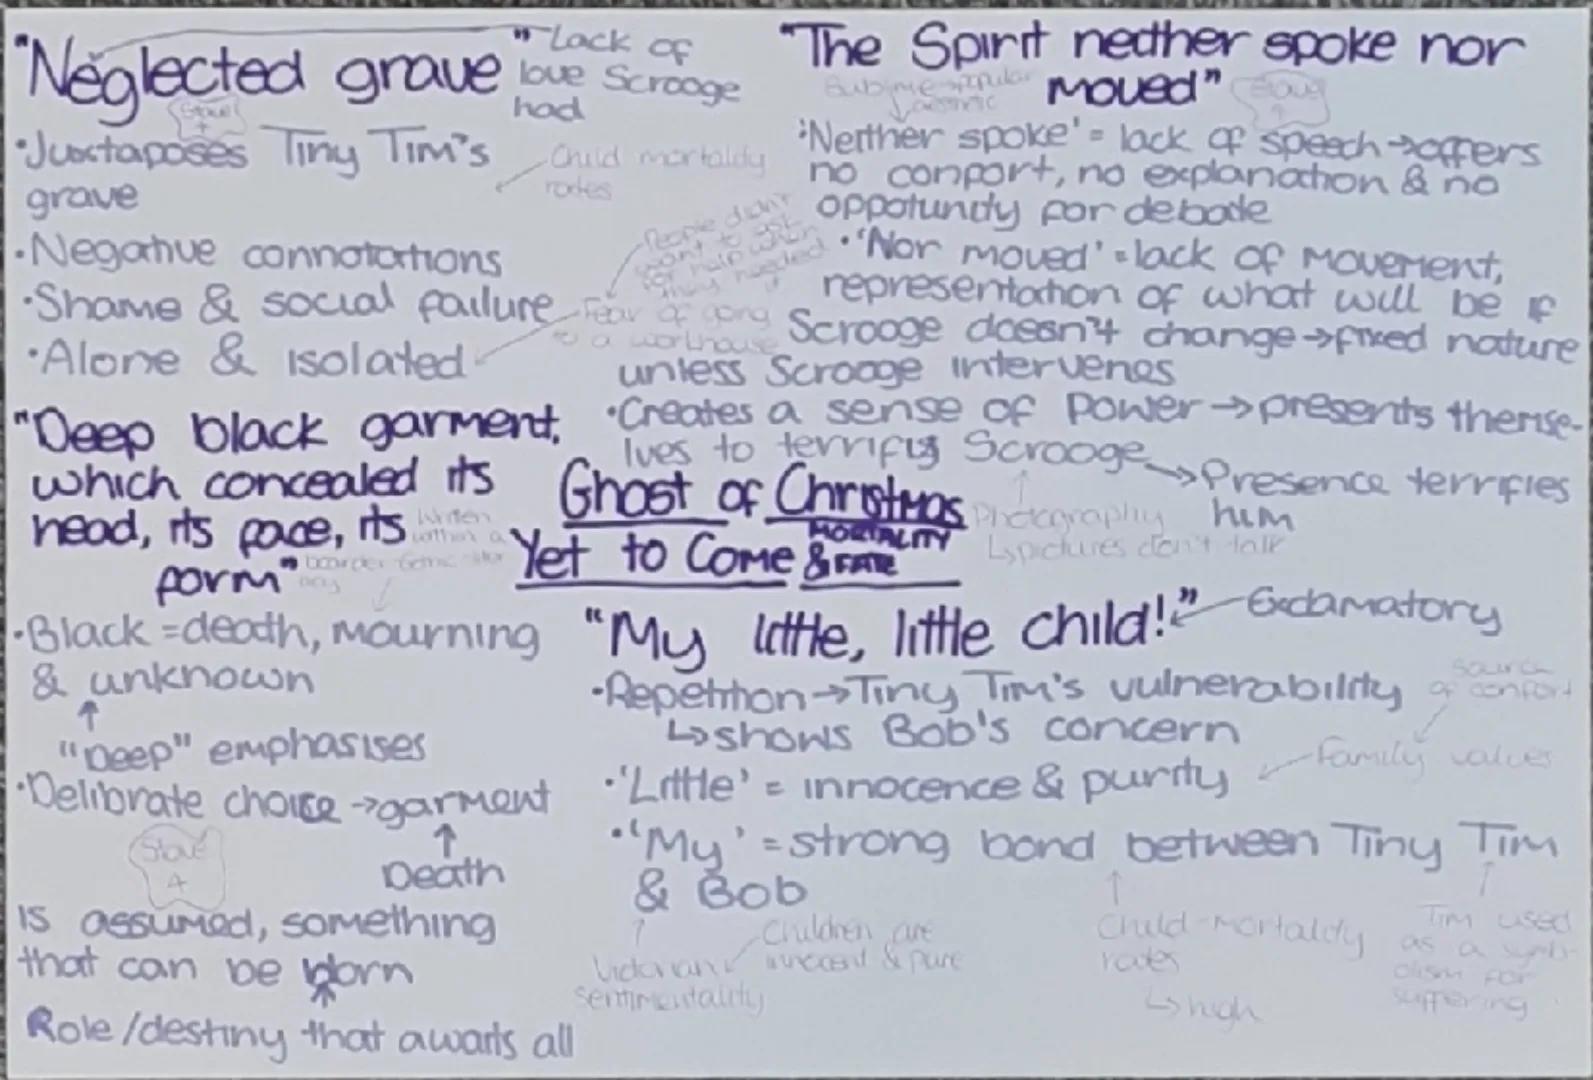 "Neglected grave"
Lack of
love Scrooge
had
Stave
4
•Juxtaposes Tiny Tim's
grave
Child mortality
rates
•Negative connotations
•Shame & social failure
•Alone & isolated
People didn't
want to ask
for help when
they needed
it
Fear of going
to a workhouse
"Deep black garment,
which concealed its
head, its face, its
form"
Written
within a
boarder Gothic
•Black =death, mourning
& unknown
"Deep" emphasises
•Delibrate choice →garment
Death
Stave
4
is assumed, something
that can be worn
Role/destiny that awaits all
"The Spirit neither spoke nor
moved"
Sublime popular
Stave
4
•'Neither spoke' = lack of speech →offers
no comfort, no explanation & no
oppotunity for debate
•'Nor moved' = lack of movement,
representation of what will be if
Scrooge doesn't change →fixed nature
unless Scrooge intervenes
•Creates a sense of power →presents themse-
lves to terrify Scrooge
→Presence terrifies
him
Photography
↳pictures don't talk
Ghost of Christmas
Yet to Come
MORTALITY
& FATE
"My little, little child!"
Exclamatory
•Repetition →Tiny Tim's vulnerability
↳shows Bob's concern
source
of comfort
Family values
•'Little' = innocence & purity
•'My' = strong bond between Tiny Tim
& Bob
Victorian
sentimentality
Children are
innocent & pure
Child-mortality
rates
↳high
Tim used
as a symb-
olism for
suffering